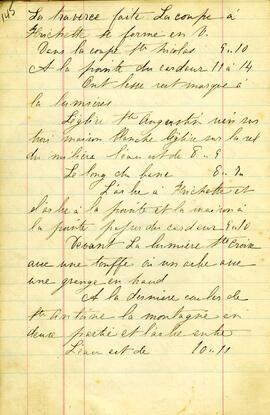 145
La traverce faite. La coupe à
Frichette se forme en V.
Dans la coupe Ste Nicolas 9..10
A la pointe du cordeur 11 à 14
Ont laise rut marque à
la lumieres
Léglise St Augustin vis vos
trois maison blanche léglise sur la rel
du milière leau est de 8..9
Le long ch bene
L'arbe à Frichette et
l'arbe à la pointe et la maison à
la pointe du cordeur 9..10
Devant La lumière Ste Croix
avec une touffe où un arbe avec
une grange en haud
A la dernière de
St Antoine la montagne en
deux partie et l'arbe
Leau est de 10..11